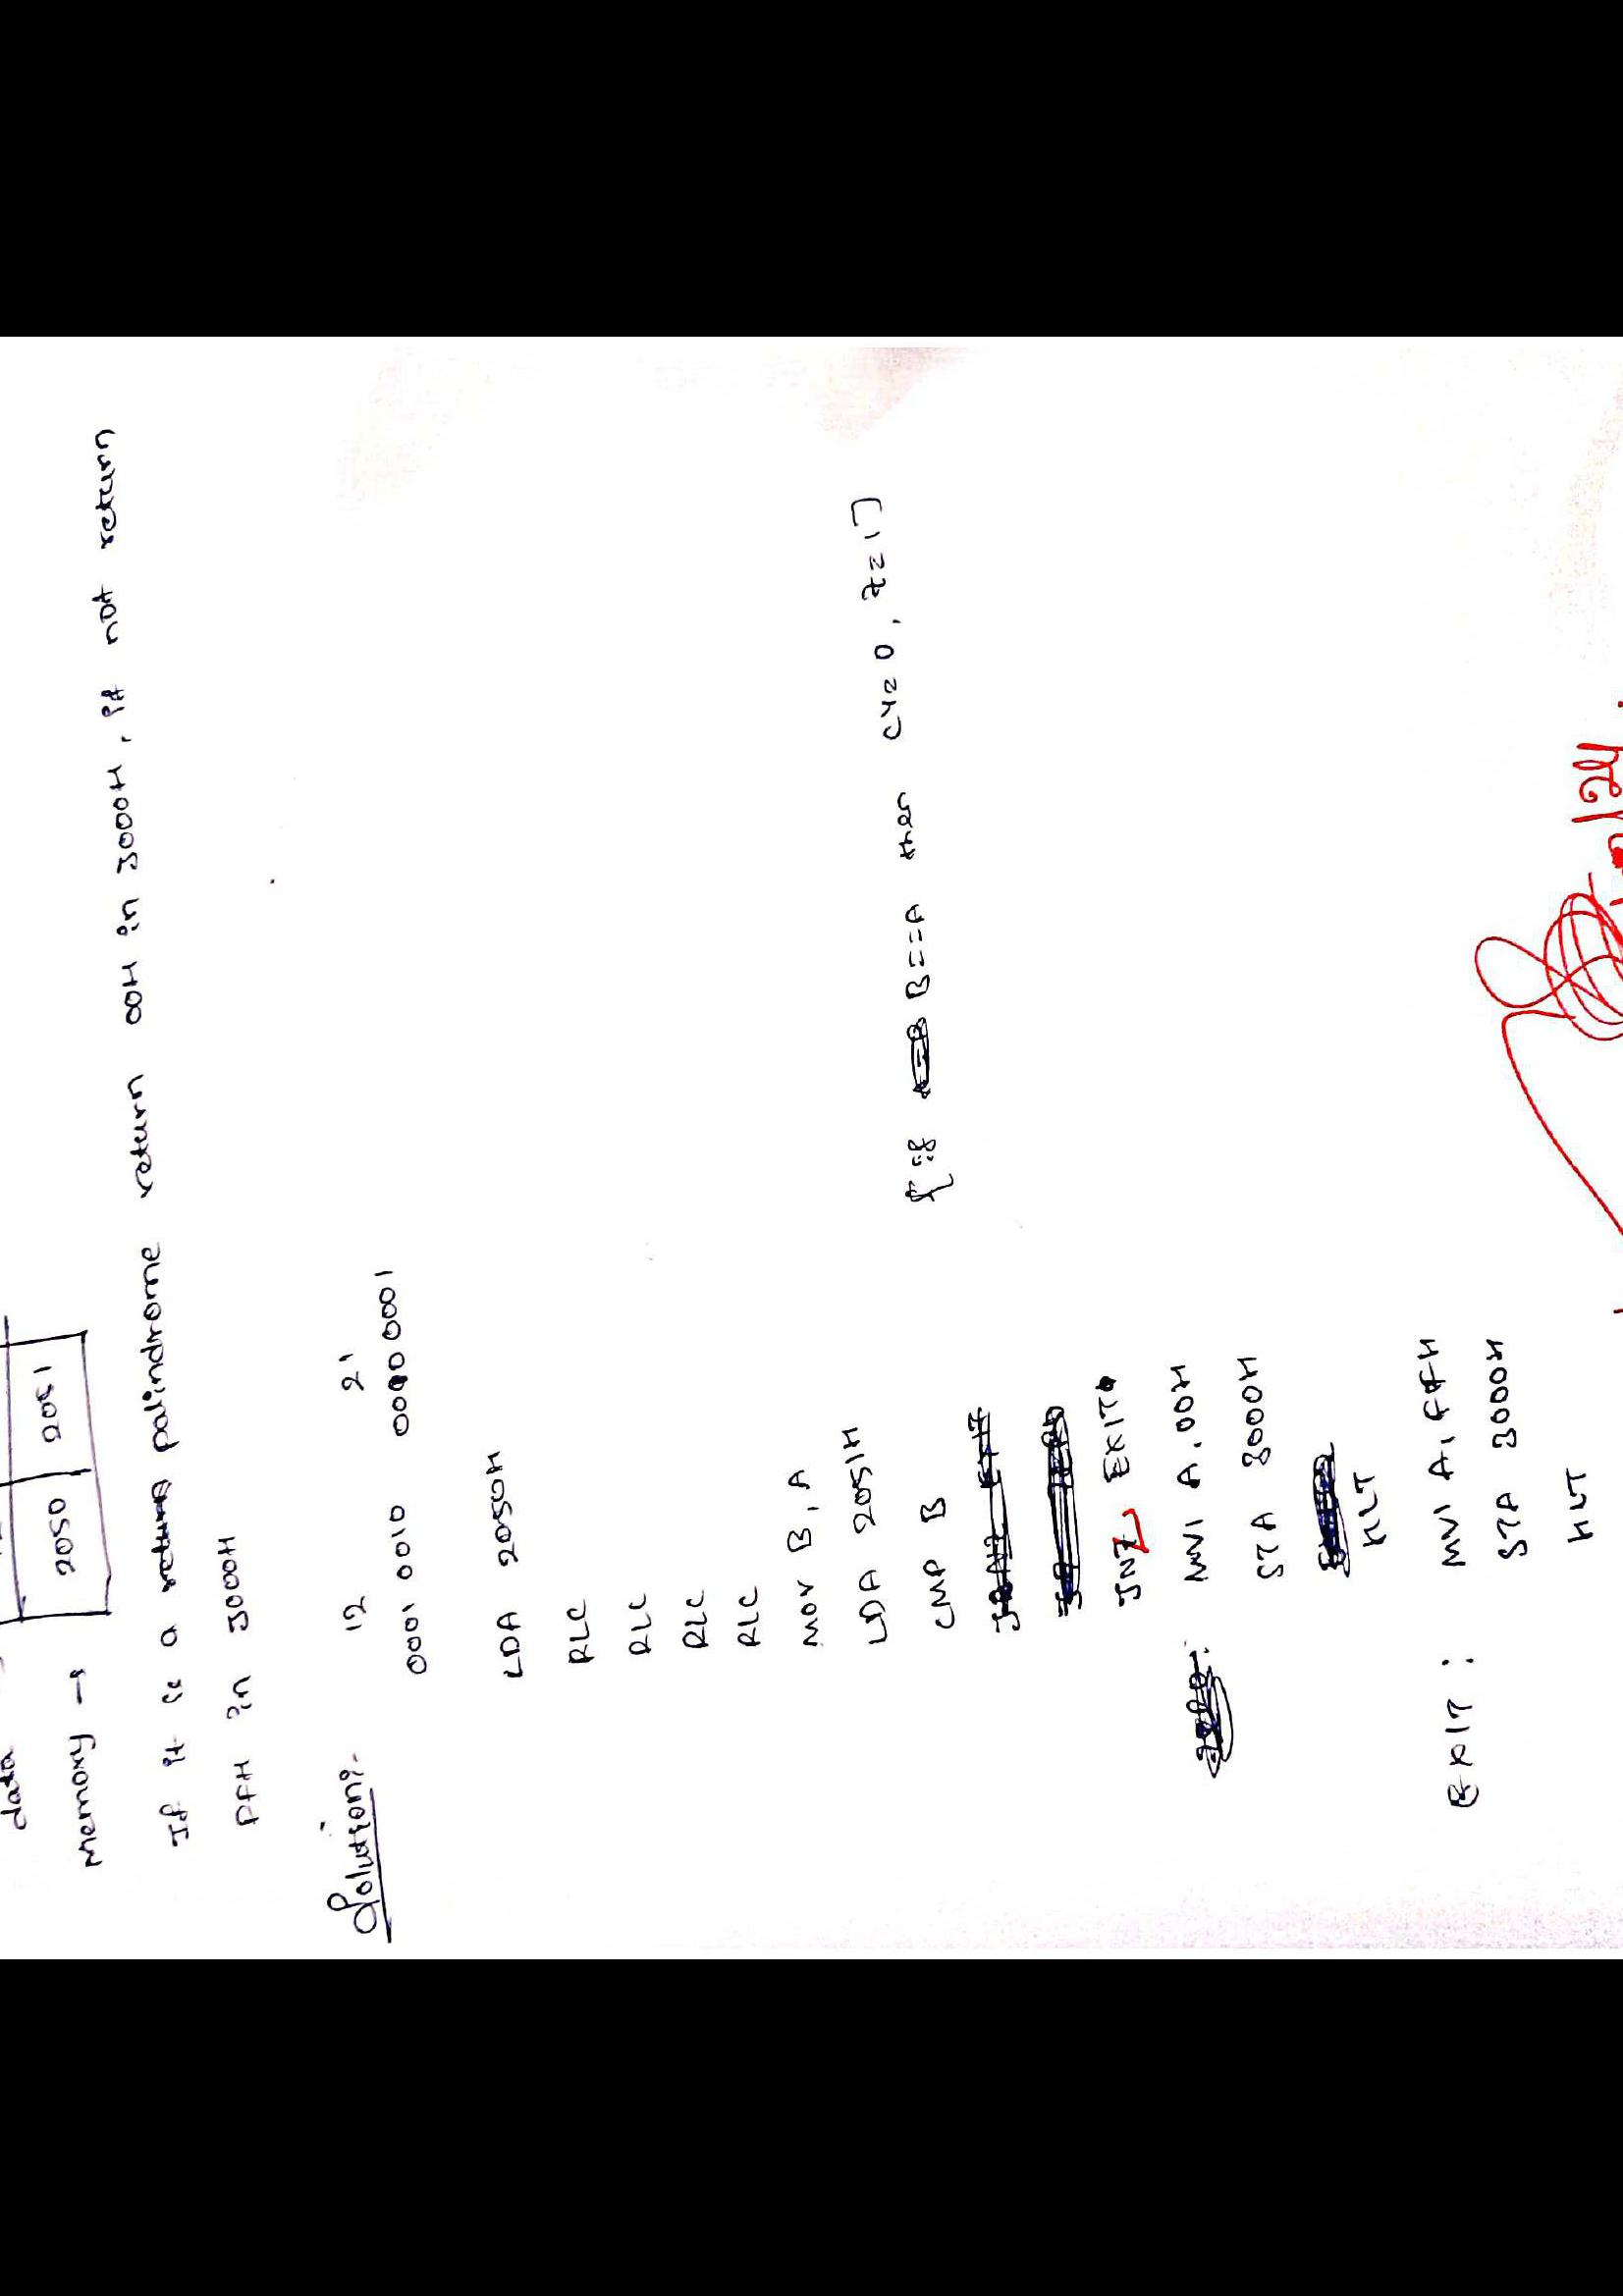 data
Memory → 2050 2051
If it is a palindrome return 00H in 3000H, if not return
FFH in 3000H
Solution:-
12 21
0001 0010 0000 0001
LDA 2050H
RLC
RLC
RLC
RLC
MOV B, A
LDA 2051H
CMP B {if B==A then CY=0, Z=1}
JNZ EXIT
MVI A, 00H
STA 3000H
HLT
EXIT: MVI A, FFH
STA 3000H
HLT